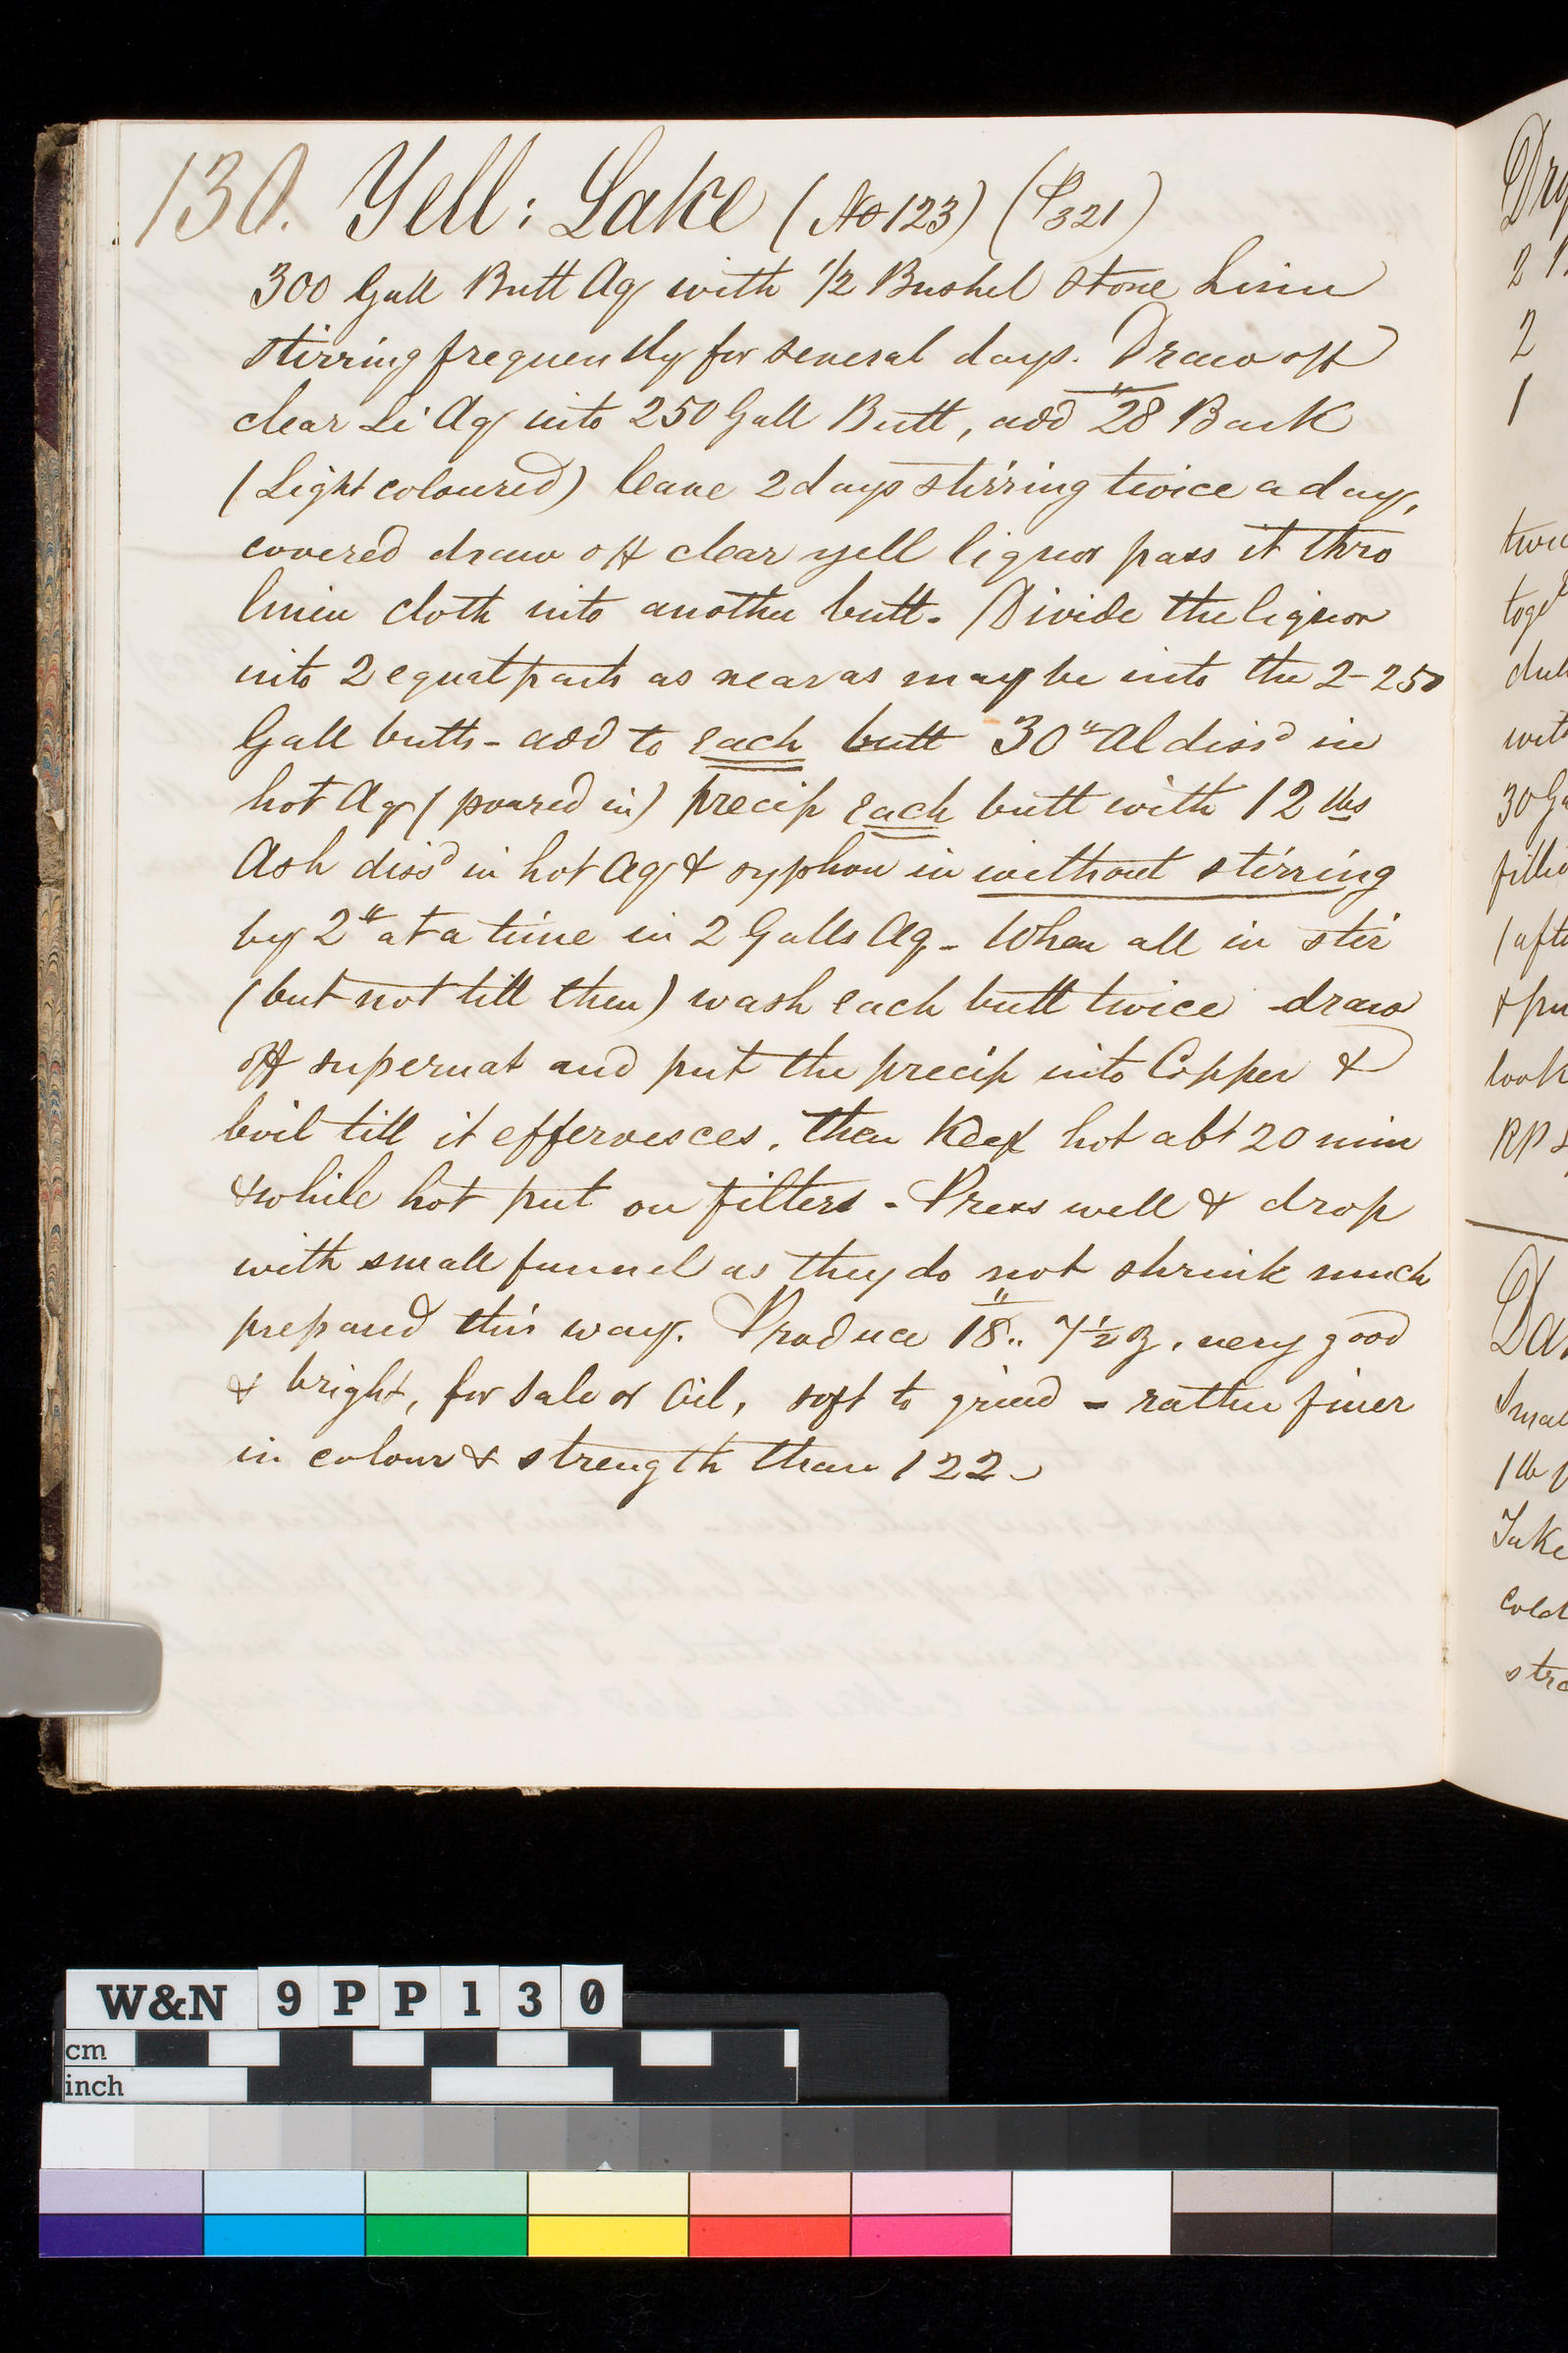 130. Yell: Lake (No 123) (P321)
300 Gall Butt Aq with 1/2 Bushel Stone Lime
stirring frequently for several days. Draw off
clear Li Aq into 250 Gall Butt, add 28" Bark
(Light coloured) leave 2 days stirring twice a day,
covered draw off clear yell liquor pass it thro
linen cloth into another butt. Divide the liquor
into 2 equal parts as near as may be into the 2-250
Gall butts - add to each butt 30" Al dissd in
hot Aq (poured in) precip each butt with 12 lbs
Ash dissd in hot Aq & syphon in without stirring
by 2" at a time in 2 Galls Aq - When all in stir
(but not till then) wash each butt twice - draw
off supernat and put the precip into Copper &
boil till it effervesces, then Keep hot abt 20 min
& while hot put on filters - Press well & drop
with small funnel as they do not shrink much
prepared this way. Produce 18".. 7 1/2 oz, very good
& bright, for Sale or Oil, soft to grind - rather finer
in colour & strength than 122
Dro
2
2
1
twic
toge
with
30 Ga
(afte
look
Da
Smal
1 lb
Take
cold
stra
W&N 9PP130
cm
inch